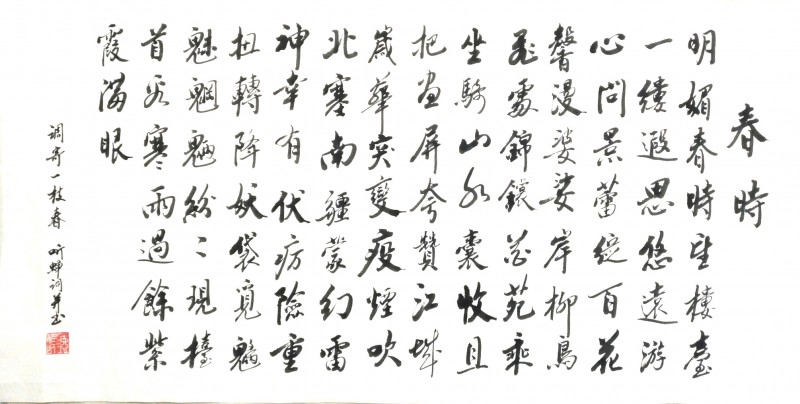 春時
明媚春時望樓臺
一縷遐思悠遠游
心問景蕾綻百花
馨漫婆娑岸柳鳥
飛處錦鑲花苑乘
坐騎山水囊收且
把畫屏夸贊江城
歲華突變疫煙吹
北塞南疆蒙幻雷
神幸有伏疠險重
扭轉降妖袋覓魑
魅魍魎紛〻現擡
首看寒雨過餘紫
霞滿眼
調寄一枝春 昕蟬詞并書